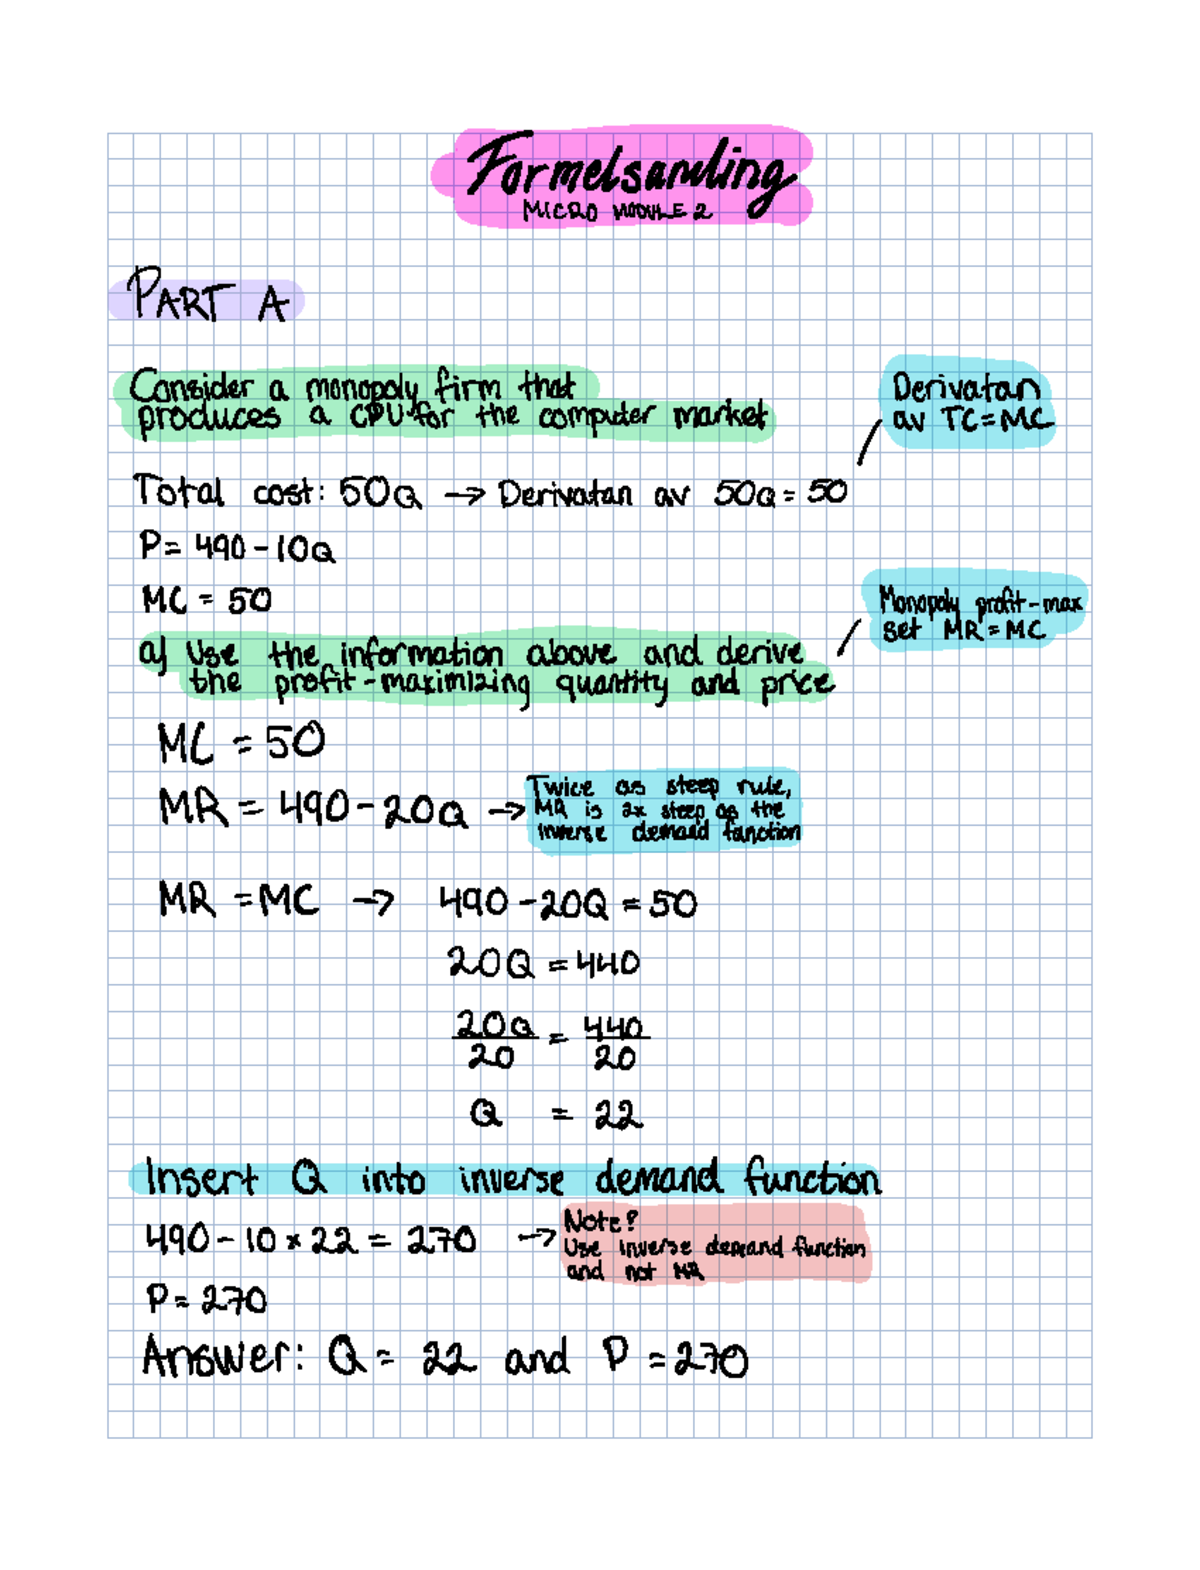 Formelsamling
MICRO MODULE 2
PART A
Consider a monopoly firm that
produces a CPU for the computer market
Derivatan
av TC=MC
Total cost: 50Q → Derivatan av 50Q = 50
P= 490-10Q
MC = 50
Monopoly profit-max
set MR=MC
a) Use the information above and derive
the profit-maximizing quantity and price
MC = 50
MR = 490-20Q →
Twice as steep rule,
MR is 2x steep as the
inverse demand function
MR = MC → 490-20Q = 50
20Q = 440
20Q/20 = 440/20
Q = 22
Insert Q into inverse demand function
490-10 × 22 = 270 →
Note?
Use inverse demand function
and not MR
P= 270
Answer: Q = 22 and P = 270